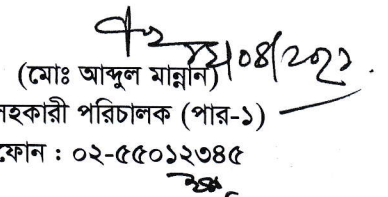 (মোঃ আব্দুল মান্নান)
সহকারী পরিচালক (পার-১)
ফোন : ০২-৫৫০১২৩৪৫